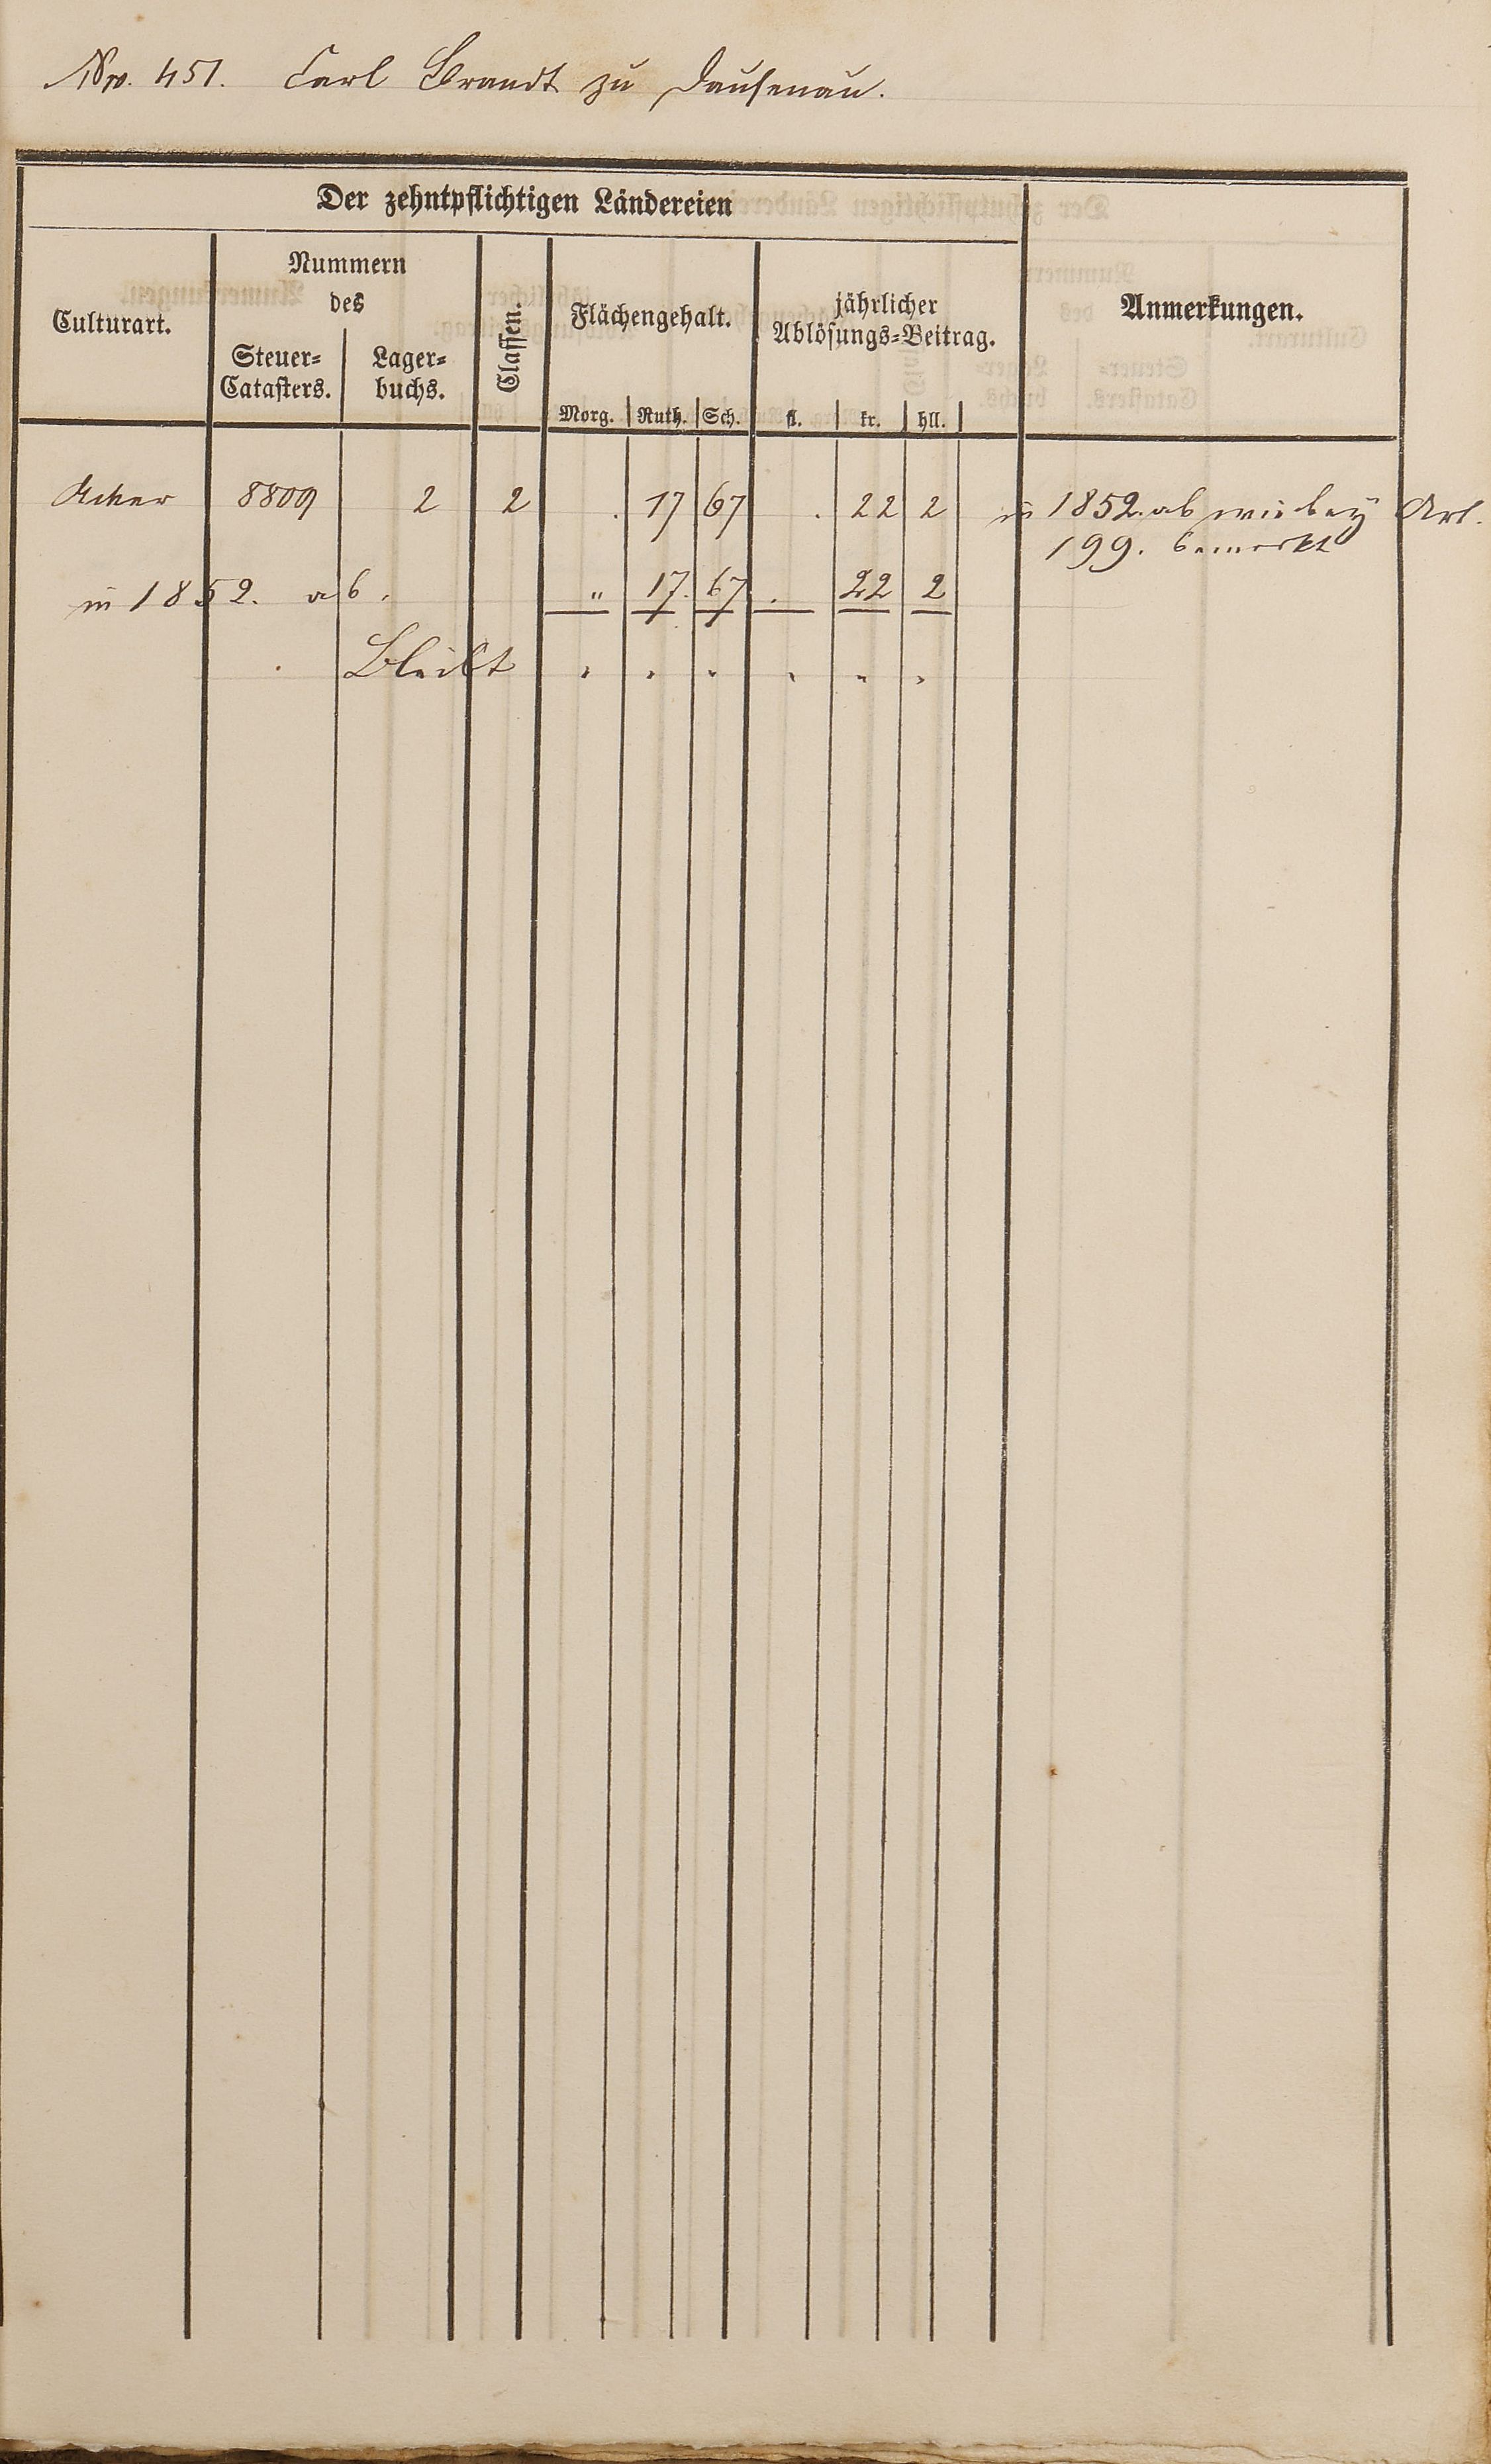 Nro. 451. Carl Brandt zu Dausenau.
Der zehntpflichtigen Ländereien
Culturart.
Nummern
des
Steuer=
Catasters.
Lager=
buchs.
Classen.
Flächengehalt.
Morg. Ruth. Sch.
jährlicher
Ablösungs=Beitrag.
fl. kr. hll.
Anmerkungen.
Acker 8809 2 2 . 17 67 . 22 2 in 1852. ab wie bey Art.
199. bemerkt
in 1852. ab. " 17. 67 . 22 2
Bleibt " " " " " "